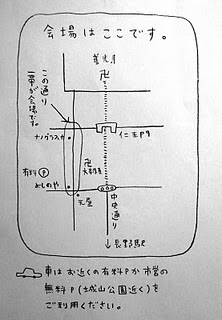 会場はここです。
善光寺
卍
この通り
一帯が会場です。
ナノグラフィカ
仁王門
卍
有料P
よしのや
天屋
中央通り
長野駅
車はお近くの有料Pか市営の
無料P(土城山公園近く)を
ご利用ください。